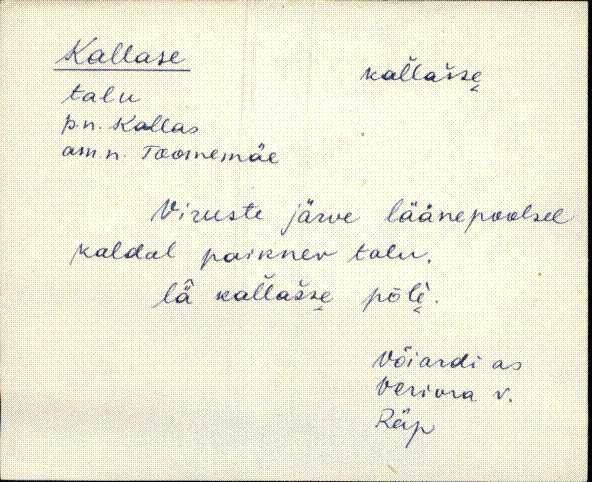 Kallase
kal̆lašse̮
talu
p.n. Kallas
am.n. Toomemäe
Viruste järve läänepoolsel
kaldal paiknev talu.
lä̂ kal̆lašse̮ põlè̮.
Võiardi as
Veriora v.
Räp